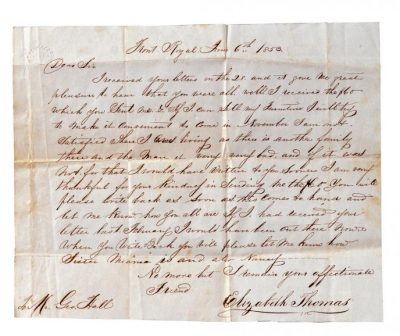 Front Royal June 6th 1853
Dear Sir
I received your letter on the 28. and it give me great
pleasure to hear that you were all well I received the $60
which you Sent me & if I can sell my Furniture I will try
to make it convenient to come in November I am not
Satisfied where I was living as there is another family
there and the Man is very very bad, and if it was
not for that I would have written to you Sooner I am very
thankful for your kindness in Sending me the $60 You will
please write back as Soon as this comes to hand and
let me know how you all are If I had received your
letter last February I would have been out there Now
When you write back you will please let me know how
Sister Maria is and also Nancy
No more but I remain your affectionate
Friend
Elizabeth Thomas
To Mr. Geo. Hall